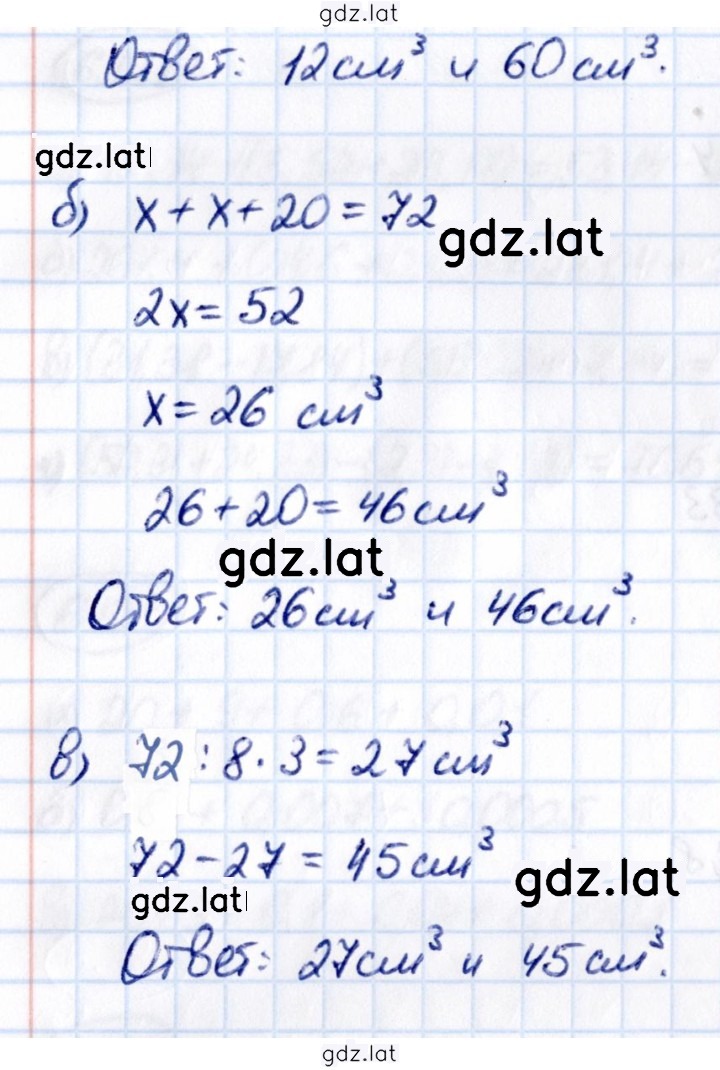 gdz.lat
Ответ: 12см³ и 60см³.
gdz.lat
б) x + x + 20 = 72
gdz.lat
2x = 52
x = 26 см³
26 + 20 = 46см³
gdz.lat
Ответ: 26см³ и 46см³.
в) 72 : 8 · 3 = 27см³
72 - 27 = 45см³
gdz.lat
gdz.lat
Ответ: 27см³ и 45см³.
gdz.lat